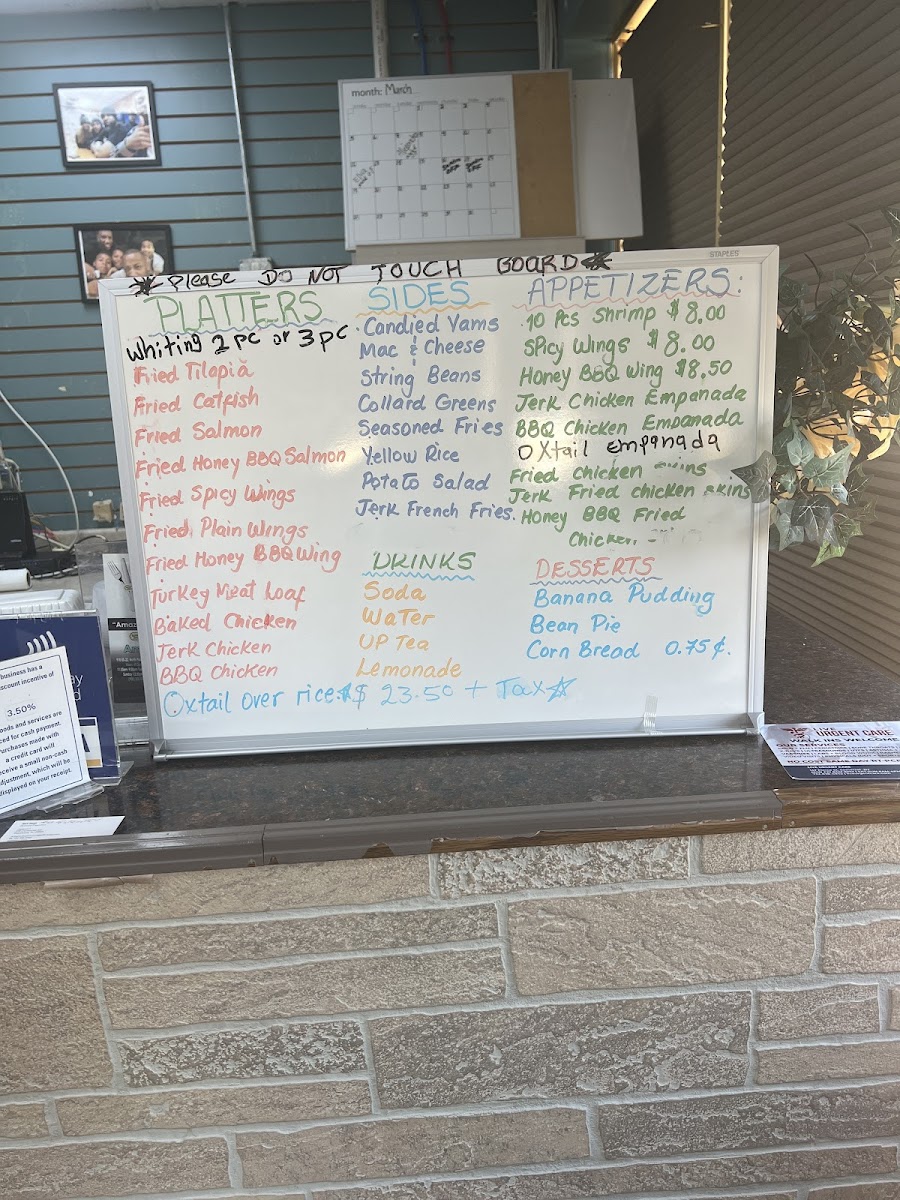 month: March
STAPLES
Please DO NOT TOUCH BOARD
PLATTERS
Whiting 2 pc or 3 pc
Fried Tilapia
Fried Catfish
Fried Salmon
Fried Honey BBQ Salmon
Fried Spicy Wings
Fried Plain Wings
Fried Honey BBQ Wing
Turkey Meat Loaf
Baked Chicken
Jerk Chicken
BBQ Chicken
Oxtail over rice: $ 23.50 + Tax
SIDES
Candied Yams
Mac & Cheese
String Beans
Collard Greens
Seasoned Fries
Yellow Rice
Potato Salad
Jerk French Fries.
DRINKS
Soda
Water
UP Tea
Lemonade
APPETIZERS:
10 Pcs Shrimp $8.00
Spicy Wings $8.00
Honey BBQ Wing $8.50
Jerk Chicken Empanada
BBQ Chicken Empanada
Oxtail empanada
Fried Chicken
Jerk Fried chicken skins
Honey BBQ Fried
Chicken
DESSERTS
Banana Pudding
Bean Pie
Corn Bread 0.75¢.
business has a
discount incentive of
3.50%
goods and services are
for cash payment.
purchases made with
a credit card will
receive a small non-cash
adjustment, which will be
displayed on your receipt.
URGENT CARE
WALK INS WELCOME
OUR SERVICES